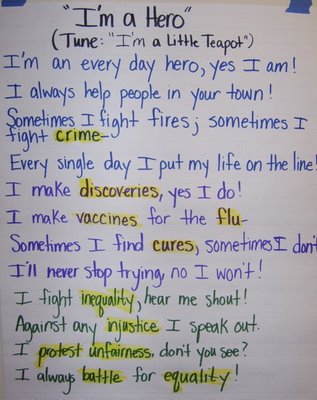 "I'm a Hero"
(Tune: "I'm a Little Teapot")
I'm an every day hero, yes I am!
I always help people in your town!
Sometimes I fight fires; sometimes I
fight crime-
Every single day I put my life on the line!
I make discoveries, yes I do!
I make vaccines for the flu-
Sometimes I find cures, sometimes I don't
I'll never stop trying, no I won't!
I fight inequality, hear me shout!
Against any injustice I speak out.
I protest unfairness, don't you see?
I always battle for equality!